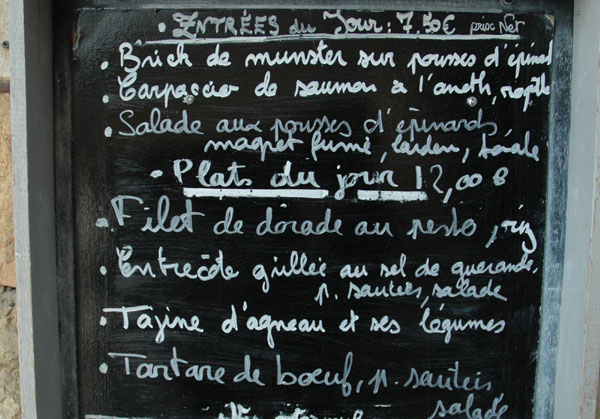 • ENTRÉES du Jour : 7,50€ prix Net
• Brick de munster sur pousses d'épinard
• Carpaccio de saumon à l'aneth,
• Salade aux pousses d'épinards,
magret fumé, lardon,
• Plats du jour 12,00 €
• Filet de dorade au pesto, riz
• Entrecôte grillée au sel de guerande,
p. sautées, salade
• Tajine d'agneau et ses légumes
• Tartare de bœuf, p. sautées
salade